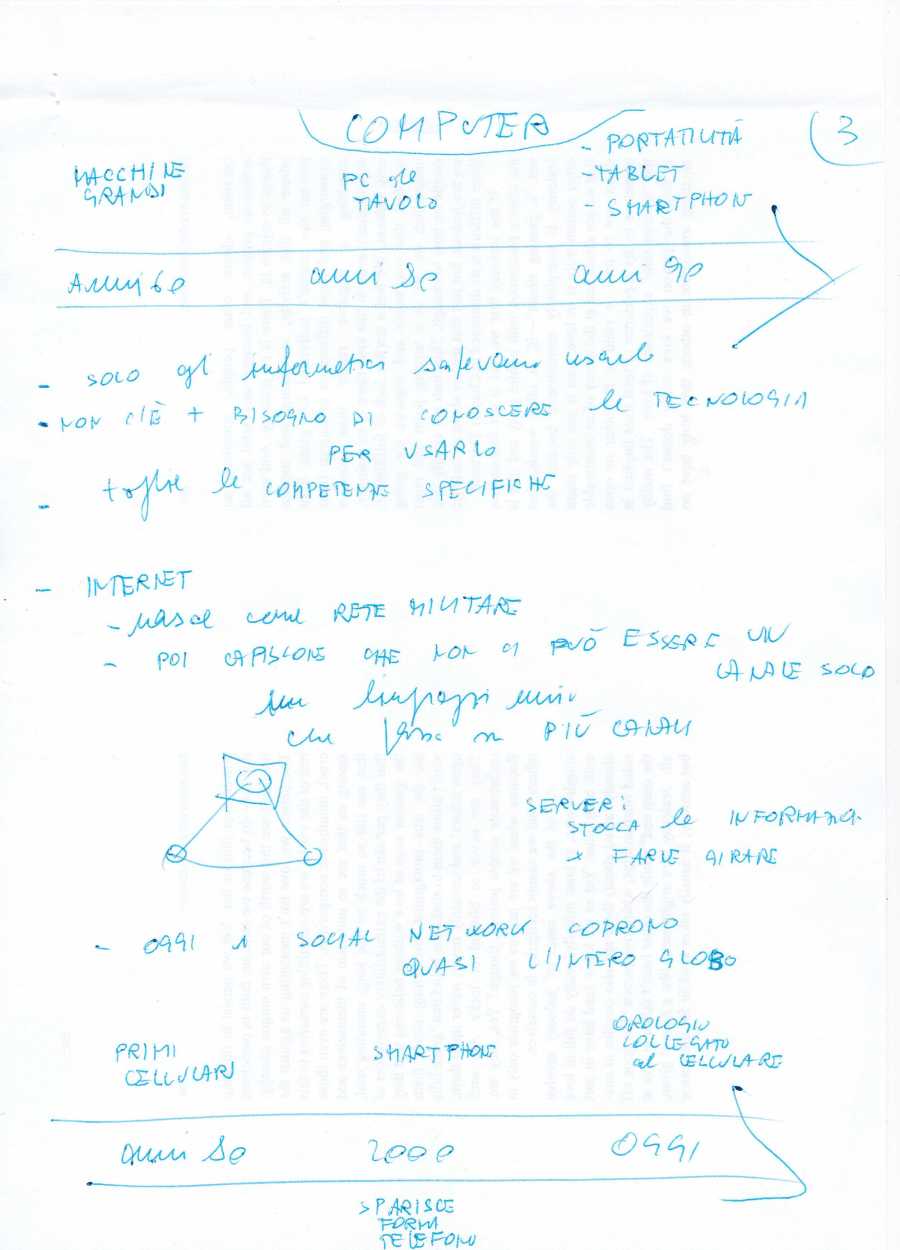 COMPUTER
3
MACCHINE
GRANDI
PC da
TAVOLO
- PORTATILITÀ
- TABLET
- SMARTPHON
Anni 60
anni 80
anni 90
- SOLO gli informatici sapevano usarlo
- NON C'È + BISOGNO DI CONOSCERE la TECNOLOGIA
PER USARLO
- toglie le COMPETENZE SPECIFICHE
- INTERNET
- nasce come RETE MILITARE
- POI CAPISCONO CHE NON CI PUÒ ESSERE UN
CANALE SOLO
che su PIÙ CANALI
SERVER:
STOCCA le INFORMAZ.
x FARLE GIRARE
- OGGI i SOCIAL NETWORK COPRONO
QUASI L'INTERO GLOBO
PRIMI
CELLULARI
SMARTPHON
OROLOGIO
COLLEGATO
al CELLULARE
anni 80
2000
OGGI
SPARISCE
FORMA
TELEFONO